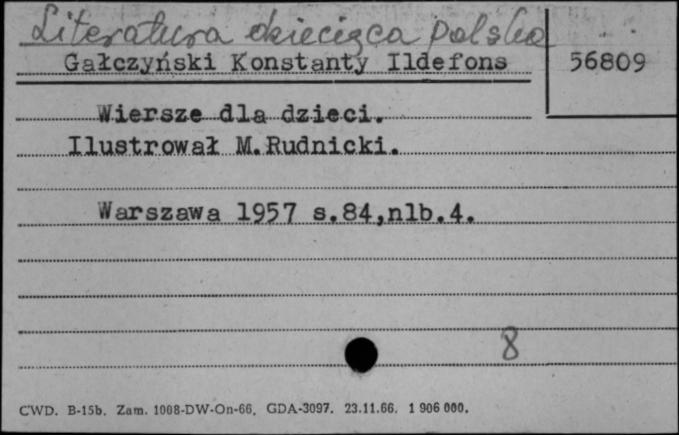 Literatura dziecięca polska
Gałczyński Konstanty Ildefons
56809
Wiersze dla dzieci.
Ilustrował M.Rudnicki.
Warszawa 1957 s.84,nlb.4.
8
CWD. B-15b. Zam. 1008-DW-On-66. GDA-3097. 23.11.66. 1 906 000.